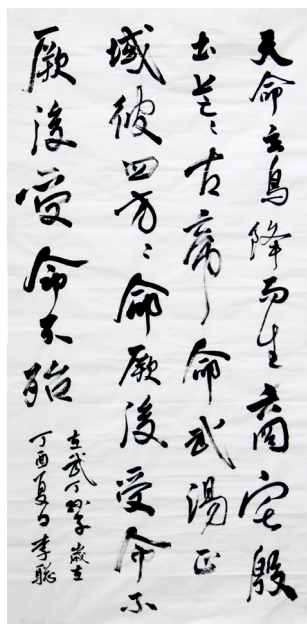 天命玄鳥降而生商宅殷
土芒〻古帝命武湯正
域彼四方〻命厥後受命不
厥後受命不殆
在武丁孫子 歲在
丁酉夏日李聪